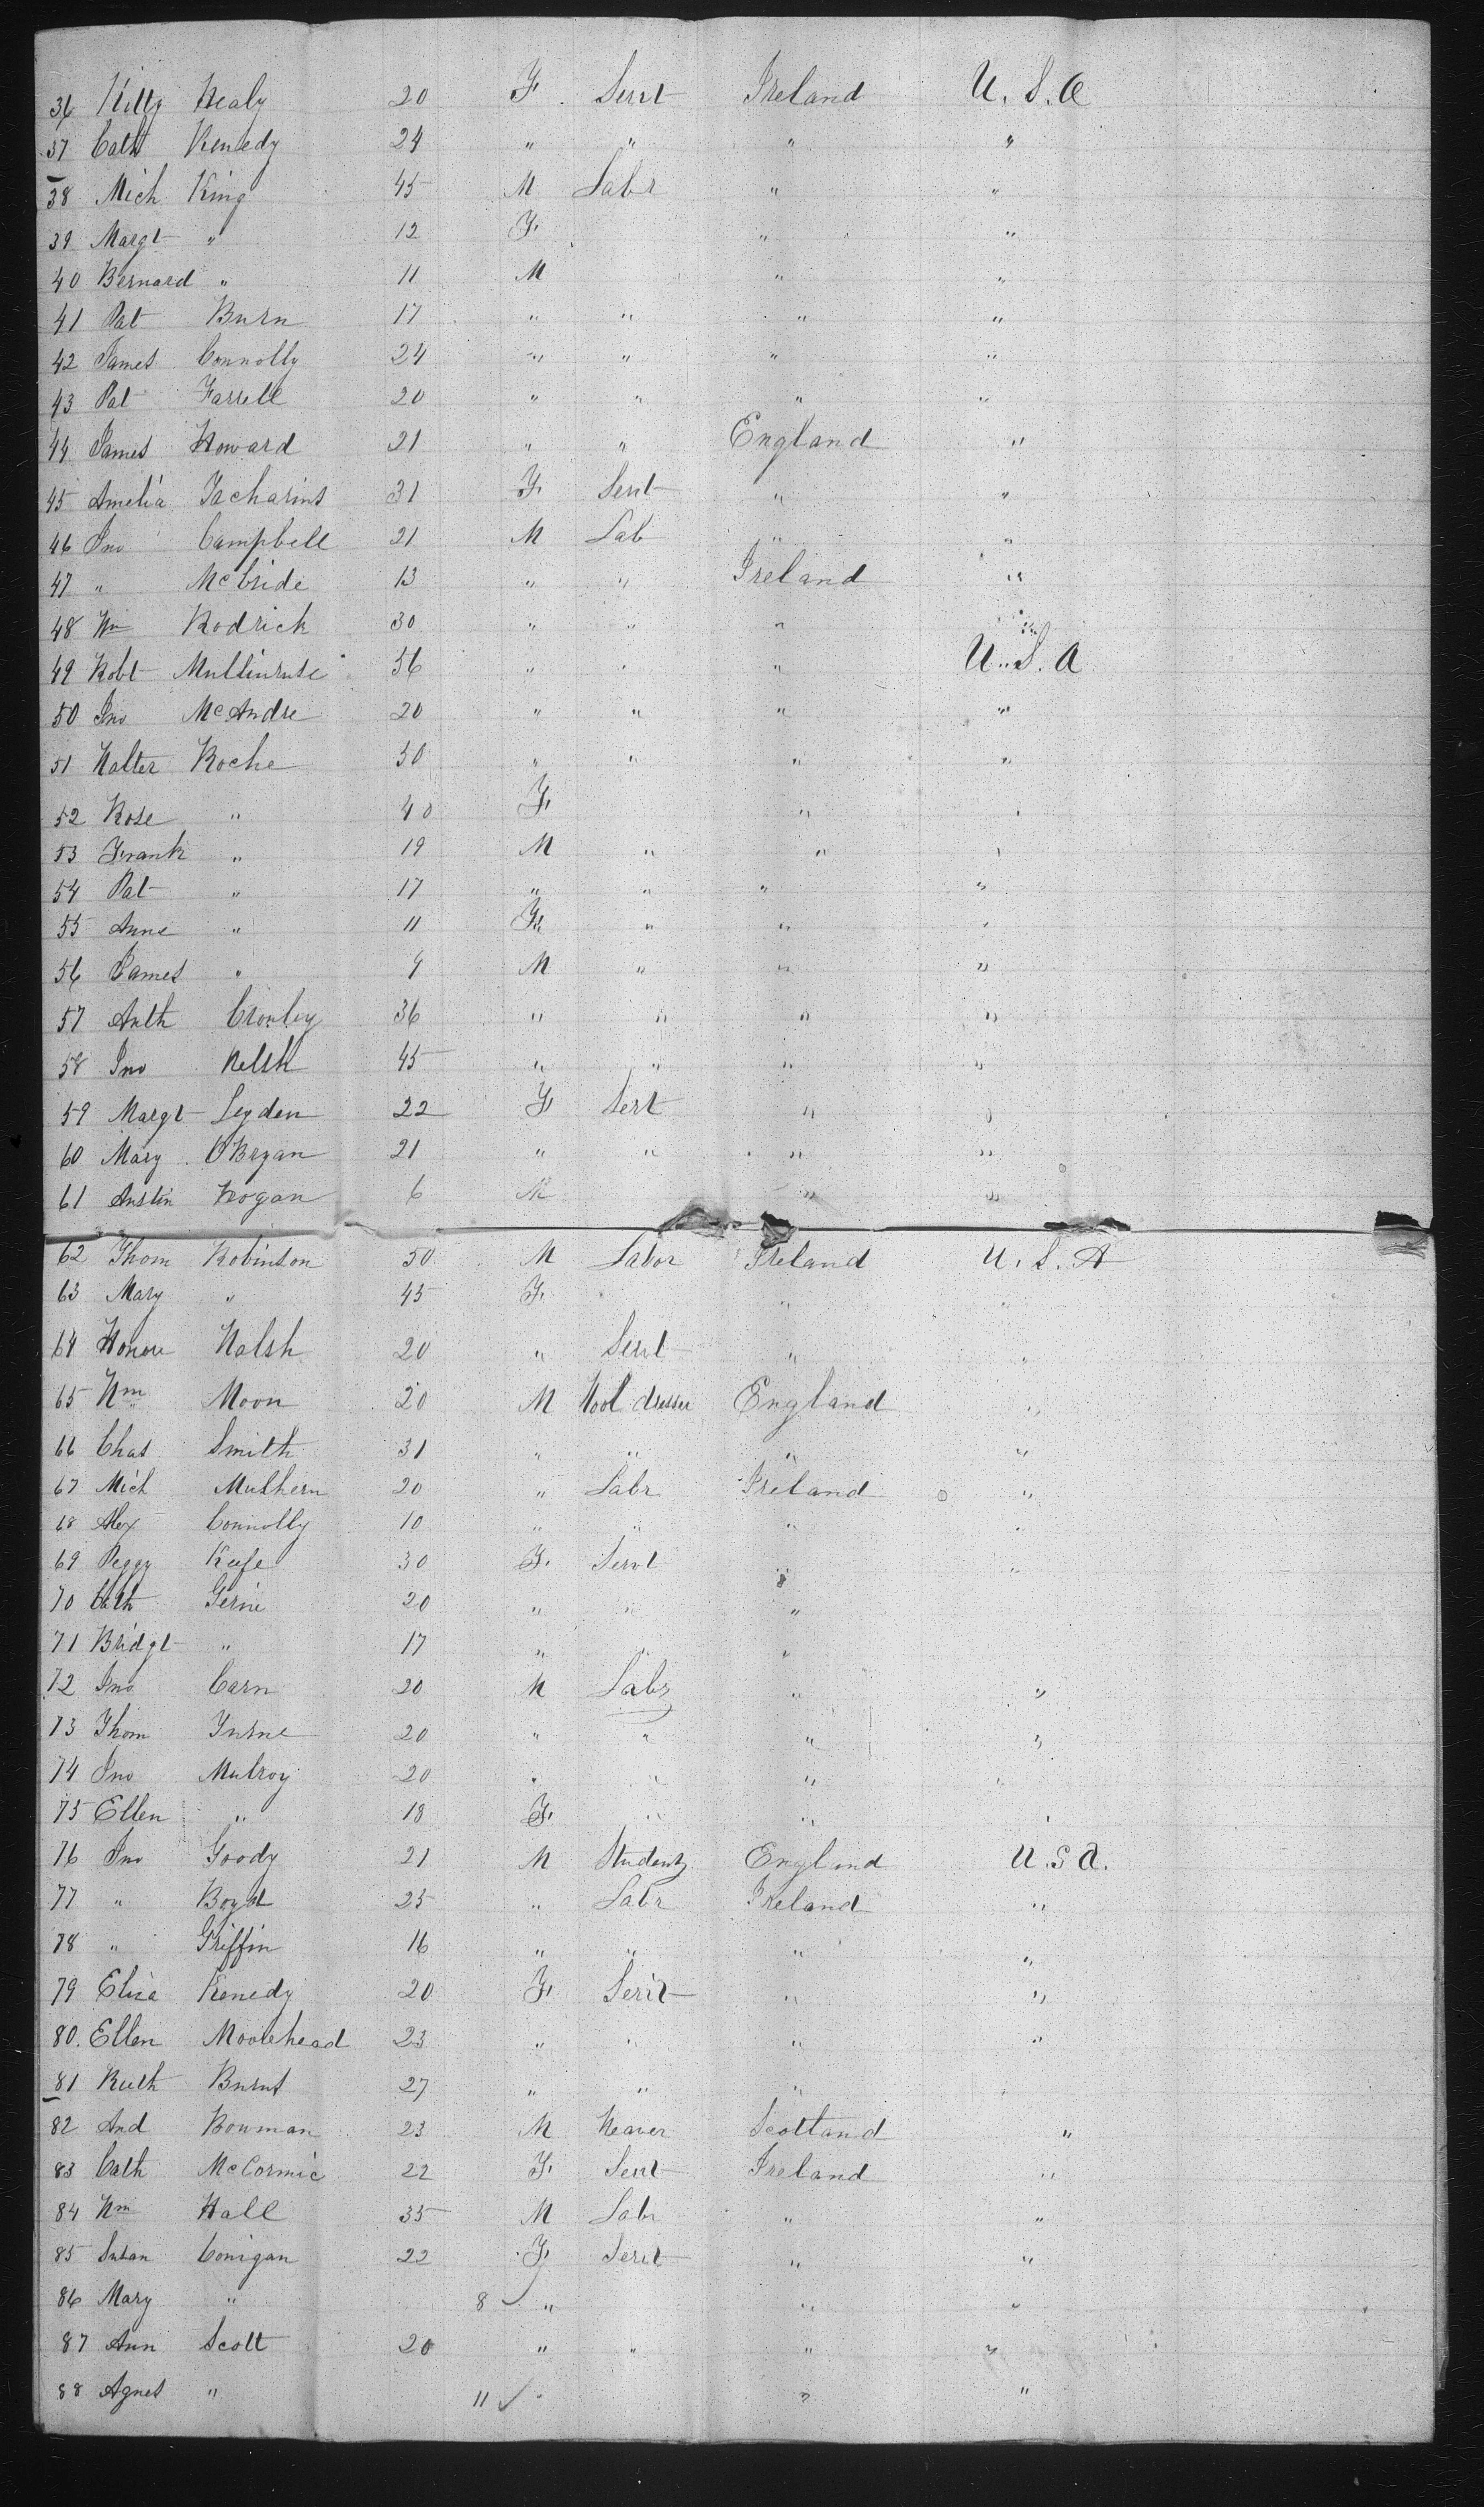 36 Kitty Healy 20 F Servt Ireland U.S.A
37 Cath Kenedy 24 " " " "
38 Mich King 45 M Labr " "
39 Margt " 12 F " "
40 Bernard " 11 M " "
41 Pat Burn 17 " " " "
42 James Connolly 24 " " " "
43 Pat Farrell 20 " " " "
44 James Howard 21 " " England "
45 Amelia 31 F Servt " "
46 Jno Campbell 21 M Lab " "
47 " McBride 13 " " Ireland "
48 Wm Rodrick 30 " " " "
49 Robt 56 " " " U.S.A
50 Jno McAndre 20 " " " "
51 Walter Roche 50 " " " "
52 Rose " 40 F " "
53 Frank " 19 M " " "
54 Pat " 17 " " " "
55 Anne " 11 F " " "
56 James " 9 M " " "
57 Anth Cronley 36 " " " "
58 Jno Welsh 45 " " " "
59 Margt Leyden 22 F Servt " "
60 Mary OBryan 21 " " " "
61 Austin Hogan 6 M " "
62 Thom Robinson 50 M Labor Ireland U.S.A
63 Mary " 45 F " "
64 Honore Walsh 20 " Servt " "
65 Wm Moon 20 M Wool dresser England "
66 Chas Smith 31 " " " "
67 Mich Mulhern 20 " Labr Ireland "
68 Alex Connolly 10 " " " "
69 Peggy Keefe 30 F Servt " "
70 Cath Gerine 20 " " "
71 Bridgt " 17 " " "
72 Jno Carn 20 M Labr " "
73 Thom 20 " " " "
74 Jno Mulroy 20 " " " "
75 Ellen " 18 F " " "
76 Jno Goody 21 M Student England U.S.A.
77 " Boyd 25 " Labr Ireland "
78 " Griffin 16 " " " "
79 Eliza Kenedy 20 F Servt " "
80. Ellen Moorehead 23 " " " "
81 Ruth Burns 27 " " " "
82 And Bowman 23 M Weaver Scotland "
83 Cath McCormic 22 F Servt Ireland "
84 Wm Hall 35 M Labr " "
85 Susan Conigan 22 F Servt " "
86 Mary " 8 ✓ " " "
87 Ann Scott 20 " " " "
88 Agnes " 11 ✓ " " "